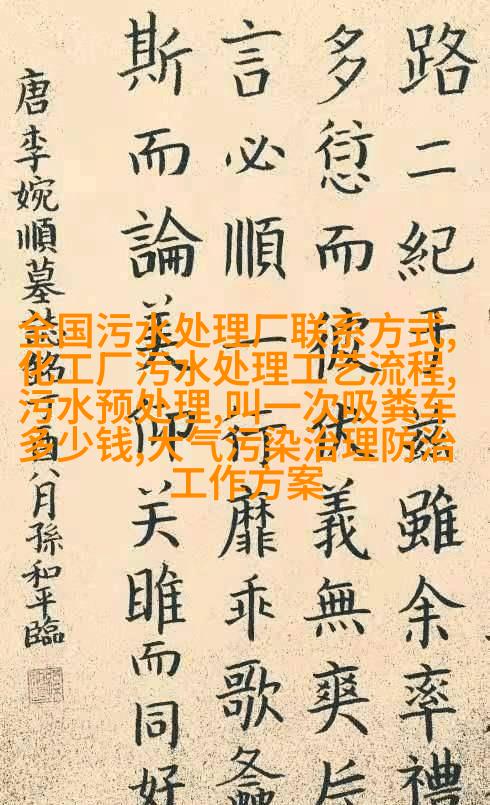 路二紀于茲雖余率禮
多愆而伏義無爽
言必順行靡乖歌螽
斯而論美仰关雎而同好
唐李婉順墓志銘丁酉八月孫和平臨
全国污水处理厂联系方式,
化工厂污水处理工艺流程,
污水预处理,叫一次吸粪车
多少钱,大气污染治理防治
工作方案